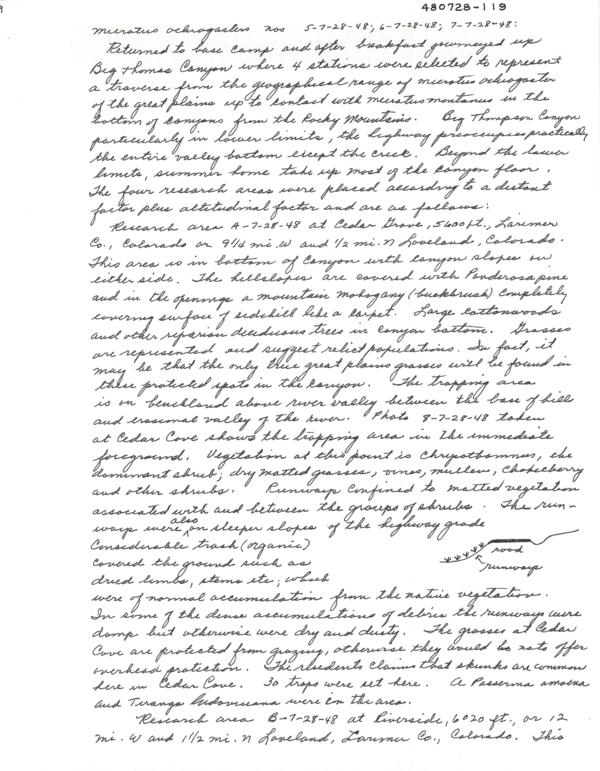 480728-119
microtus ochrogasters nos 5-7-28-48; 6-7-28-48; 7-7-28-48:
Returned to base camp and after breakfast journeyed up
Big Thomas Canyon where 4 stations were selected to represent
a traverse from the geographical range of microtus ochrogaster
of the great plains up to contact with microtus montanus in the
bottom of canyons from the Rocky Mountains. Big Thompson Canyon
particularly in lower limits, the highway preoccupies practically
the entire valley bottom except the creek. Beyond the lower
limits, summer home take up most of the canyon floor.
The four research areas were placed according to a distant
factor plus altitudinal factor and are as follows:
Research area A-7-28-48 at Cedar Grove, 5600 ft., Larimer
Co., Colorado or 9 1/4 mi. W and 1/2 mi. N Loveland, Colorado.
This area is in bottom of Canyon with canyon slopes on
either side. The hillslopes are covered with Ponderosa pine
and in the openings a mountain mohogany (buckbrush) completely
covering surface of sidehill like a carpet. Large cottonwoods
and other riparian deciduous trees in canyon bottom. Grasses
are represented and suggest relict populations. In fact, it
may be that the only true great plains grasses will be found in
these protected spots in the canyon. The trapping area
is on benchland above river valley between the base of hill
and erosional valley of the river. Photo 8-7-28-48 taken
at Cedar Cove shows the trapping area in the immediate
foreground. Vegetation at this point is Chrysothamnus, the
dominant shrub; dry matted grasses, vines, mullen, Chokecherry
and other shrubs. Runways confined to matted vegetation
associated with and between the groups of shrubs. The run-
ways were also on steeper slopes of the highway grade
Considerable trash (organic)
covered the ground such as
dried limbs, stems etc; which
road
runways
were of normal accumulation from the native vegetation.
In some of the dense accumulations of debris the runways were
damp but otherwise were dry and dusty. The grasses at Cedar
Cove are protected from grazing, otherwise they would be not offer
overhead protection. The residents claims that skunks are common
here in Cedar Cove. 50 traps were set here. A Passerina amoena
and Piranga ludoviciana were in the area.
Research area B-7-28-48 at Riverside, 6020 ft., or 12
mi. W and 1 1/2 mi. N Loveland, Larimer Co., Colorado. This